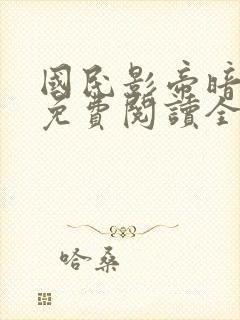 國民影帝暗
免費閱讀全
哈桑